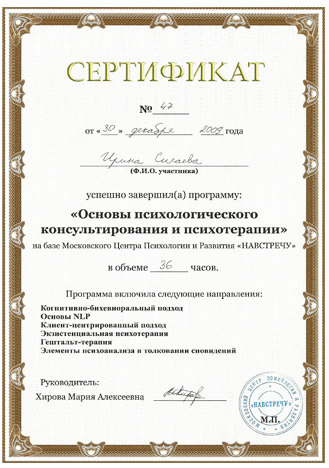 СЕРТИФИКАТ
№ 47
от «30» декабря 2009 года
Ирина Сигаева
(Ф.И.О. участника)
успешно завершил(а) программу:
«Основы психологического
консультирования и психотерапии»
на базе Московского Центра Психологии и Развития «НАВСТРЕЧУ»
в объеме 36 часов.
Программа включила следующие направления:
Когнитивно-бихевиоральный подход
Основы NLP
Клиент-центрированный подход
Экзистенциальная психотерапия
Гештальт-терапия
Элементы психоанализа в толковании сновидений
Руководитель:
Хирова Мария Алексеевна
МОСКОВСКИЙ ЦЕНТР ПСИХОЛОГИИ И РАЗВИТИЯ
«НАВСТРЕЧУ»
М.П.